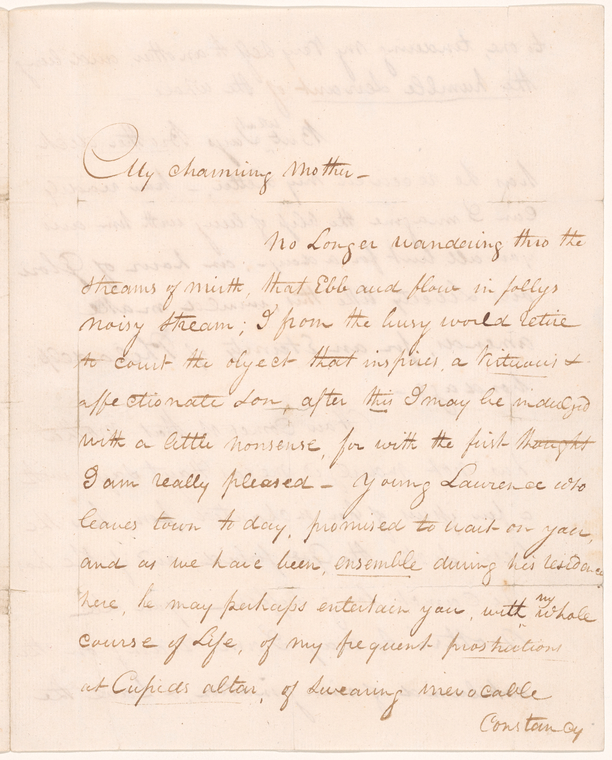 My charming Mother -
No Longer wandering thro the
streams of mirth, that Ebb and flow in follys
noisy stream; I from the busy world retire
to court the object that inspires, a virtuous &
affectionate son, after this I may be indulged
with a little nonsense, for with the first thought
I am really pleased - Young Lawrence who
leaves town to day, promised to wait on you,
and as we have been, ensemble during his residence
here, he may perhaps entertain you, with my whole
course of Life, of my frequent prostrations
at Cupids altar, of swearing irrevocable
Constancy